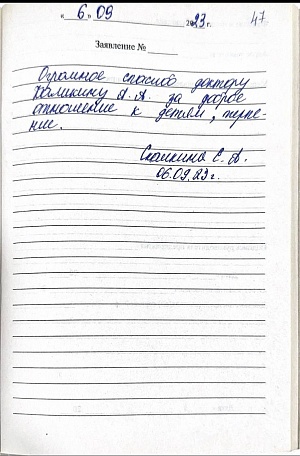 « 6 » 09 2023 г. 47
Заявление №
Огромное спасибо доктору
Халикину А. А. за доброе
отношение к детям, терпе-
ние.
Скалкина Е. А.
06.09.23 г.